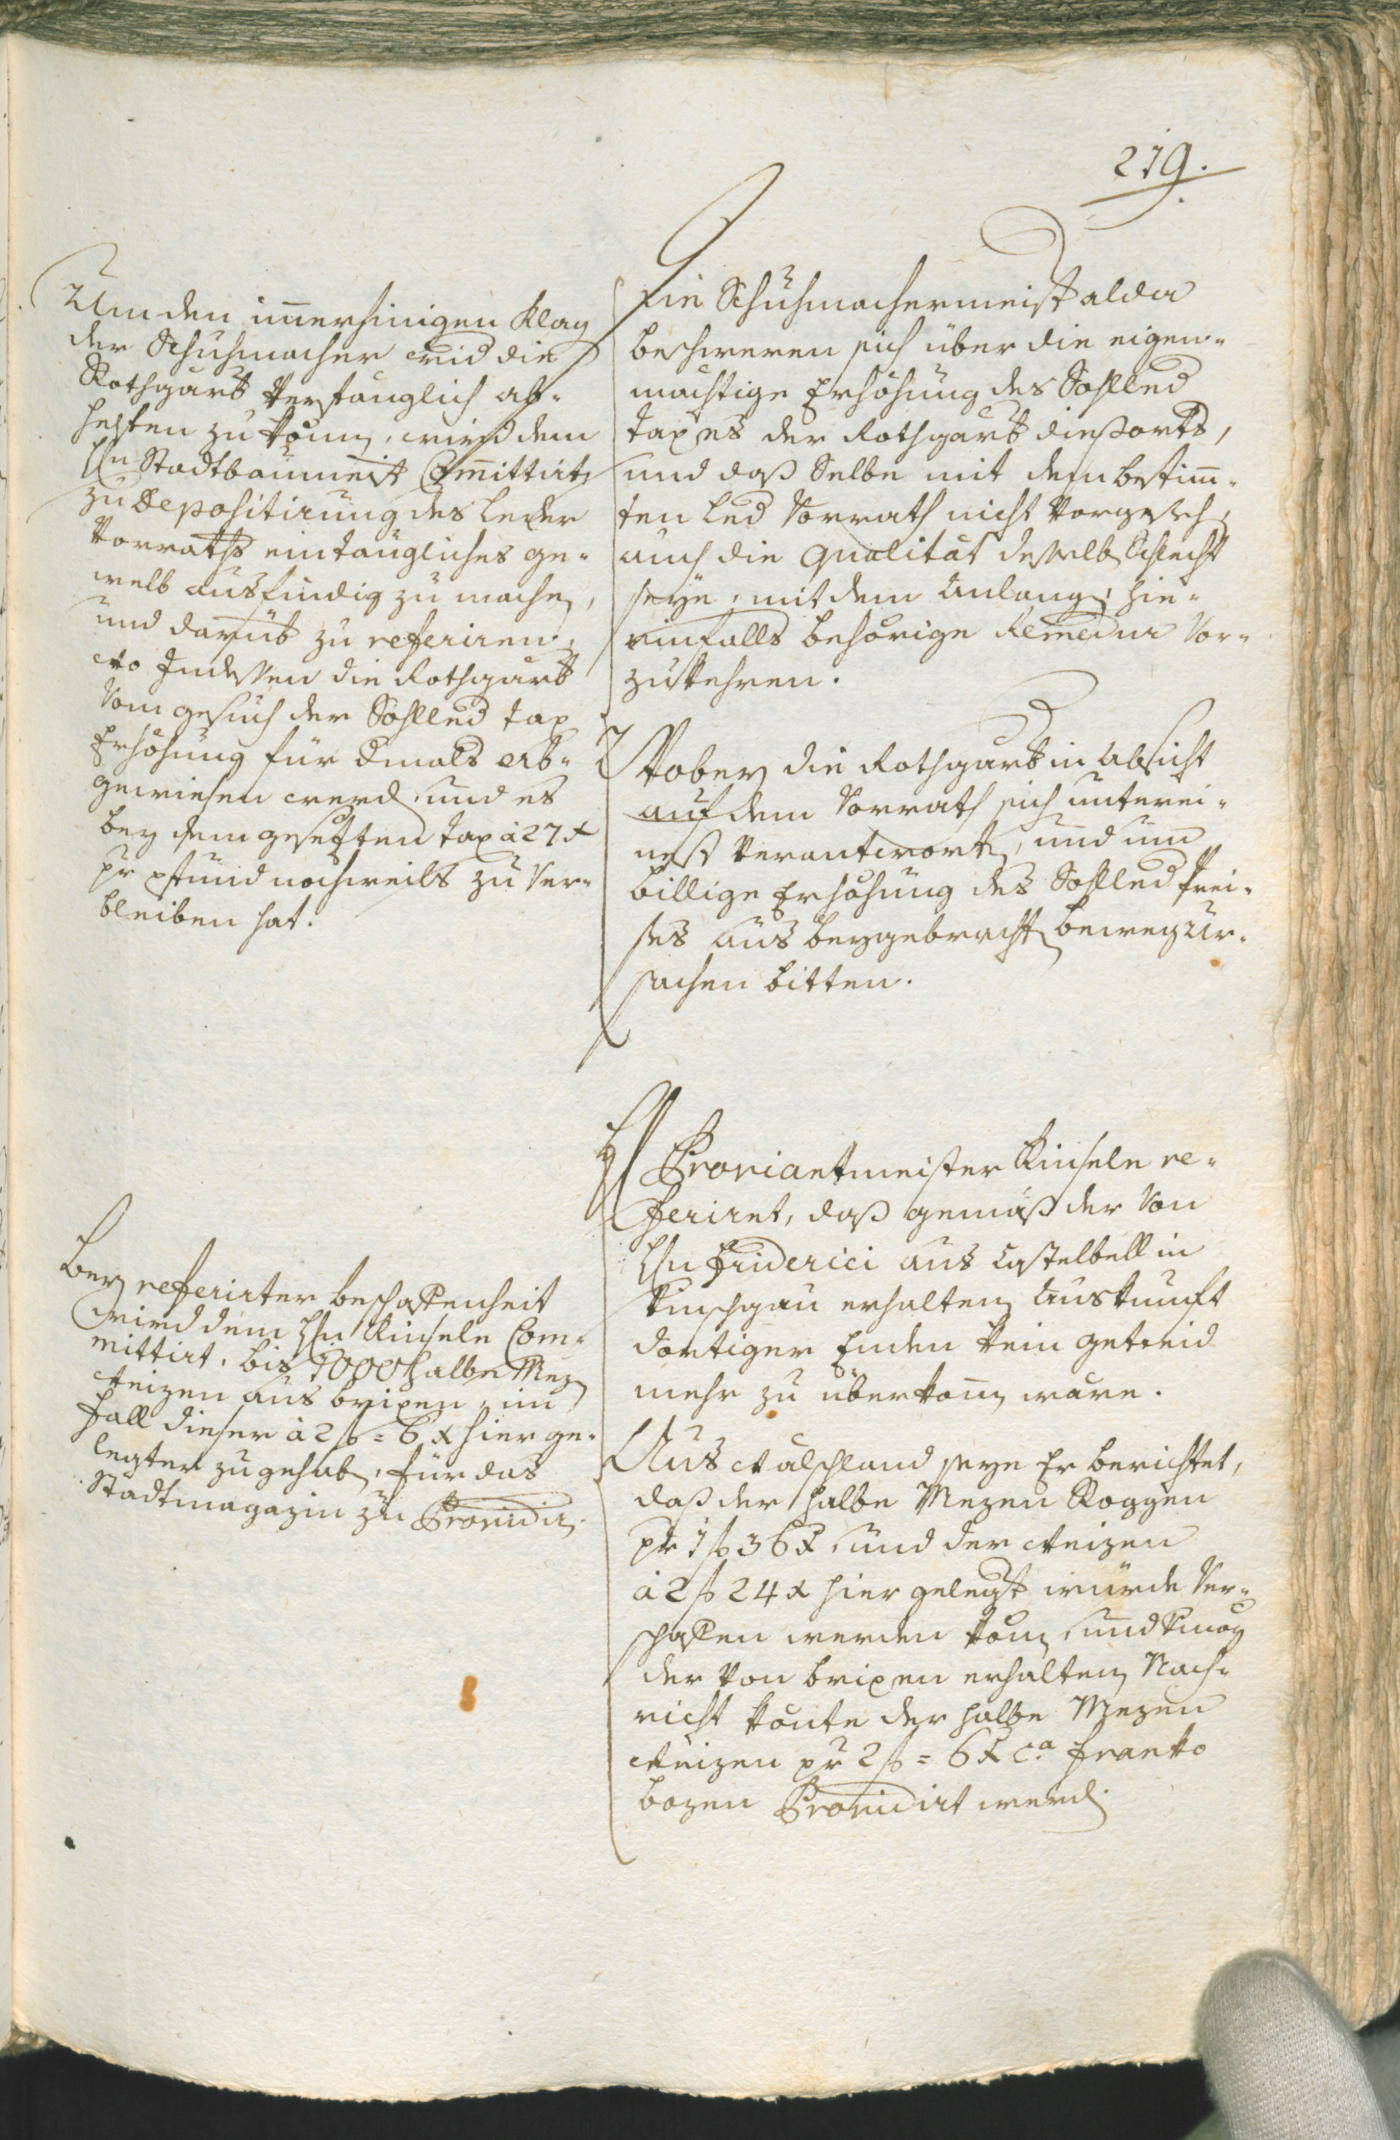 219.
Um den immerhinigen Klag
der Schuhmacher wid die
Rothgärb verfänglich ab-
helfen zu könn, wird dem
Hn Stadtbaumeist Committirt
zu Depositirung des Leder
Vorraths ein taugliches ge-
welb ausfindig zu machen,
und darüb zu referiren,
wo Indessen die Rothgärb
vom gesuch der Sohlled tax
Erhöhung für dmals ab-
gewiesen werd, und es
bey dem gesetzten tax à 27 x
pr pfund nochweils zu ver-
bleiben hat.
Die Schuhmachermeist alda
beschweren sich über die eigen-
mächtige Erhöhung des Sohlled
taxes der Rothgärb diesorts,
und daß Selbe mit dem bestimm-
ten Led Vorrath nicht vorgeseh,
auch die Qualität desselb schlecht
seye, mit dem Anlang, hie-
rinfalls behörige Remedur vor-
zukehren.
Wobey die Rothgärb in Absicht
auf dem Vorrath sich unterei-
nest verantwort, und um
billige Erhöhung des Sohlled Prei-
ses aus beygebracht bewegur-
sachen bitten.
H Proviantmeister Kinsele re-
feriret, daß gemäß der von
Hn Friderici aus Castelbell in
Vinschgau erhalten Auskunft
dortiger Enden kein getreid
mehr zu überkomm wäre.
Aus Walschland seye Er berichtet,
daß der halbe Mezen Roggen
pr 1 f 36 x, und der Weizen
à 2 f 24 x hier gelegt würde ver-
schaffen werden könn, und vmög
der von brixen erhalten Nach-
richt könte der halbe Mezen
Weizen pr 2 f = 6 x ca franko
bozen Providirt werd.
Bey referirter beschaffenheit
wird dem Hn Kinsele Com-
mittirt, bis 1000 halbe Mez
Weizen aus brixen, im
fall dieser à 2 f = 6 x hier ge-
legter zu gehab, für das
Stadtmagazin zu Providir.